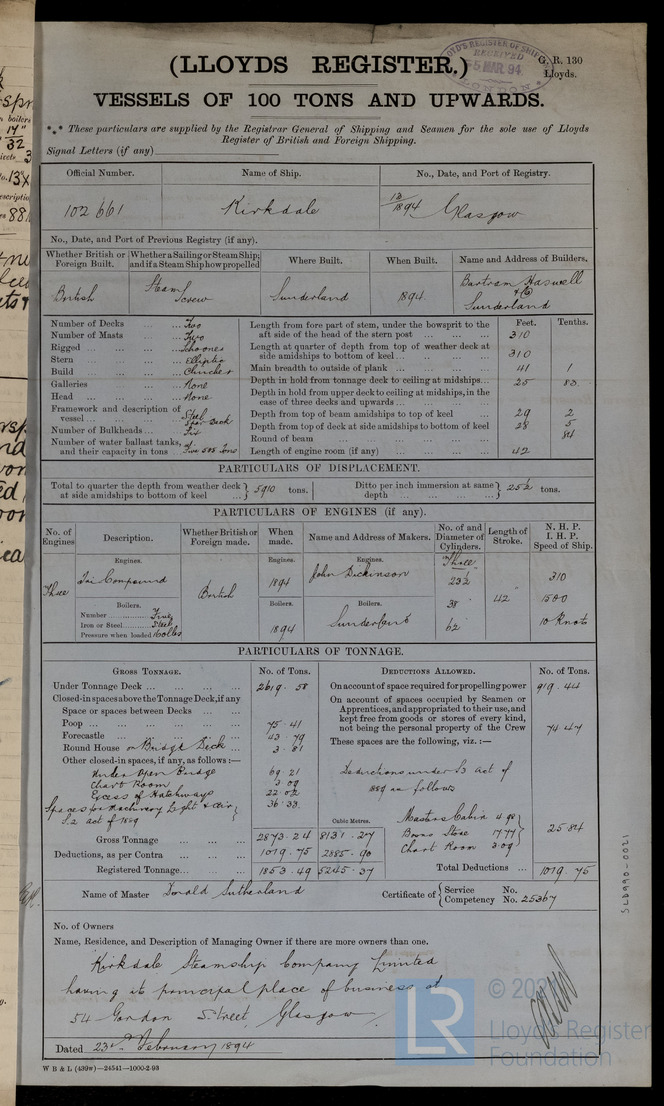 LLOYD'S REGISTER OF SHIPPING
RECEIVED
5 MAR. 94
LONDON
(LLOYDS REGISTER.)
G. R. 130
Lloyds.
VESSELS OF 100 TONS AND UPWARDS.
*⁎* These particulars are supplied by the Registrar General of Shipping and Seamen for the sole use of Lloyds
Register of British and Foreign Shipping.
Signal Letters (if any)
Official Number. Name of Ship. No., Date, and Port of Registry.
102661 Kirkdale 13/1894 Glasgow
No., Date, and Port of Previous Registry (if any).
Whether British or Foreign Built. Whether a Sailing or Steam Ship; and if a Steam Ship how propelled Where Built. When Built. Name and Address of Builders.
British Steam Screw Sunderland 1894 Bartram Haswell & Co Sunderland
Feet. Tenths.
Number of Decks ... Two
Number of Masts ... Two
Rigged ... Schooner
Stern ... Elliptic
Build ... Clincher
Galleries ... None
Head ... None
Framework and description of vessel ... Steel Spar Deck
Number of Bulkheads ... Six
Number of water ballast tanks, and their capacity in tons Five 585 Tons
Length from fore part of stem, under the bowsprit to the aft side of the head of the stern post ... 310
Length at quarter of depth from top of weather deck at side amidships to bottom of keel ... 310
Main breadth to outside of plank ... 41 1
Depth in hold from tonnage deck to ceiling at midships ... 25 83
Depth in hold from upper deck to ceiling at midships, in the case of three decks and upwards ...
Depth from top of beam amidships to top of keel ... 29 2
Depth from top of deck at side amidships to bottom of keel 28 5
Round of beam ... 84
Length of engine room (if any) ... 42
PARTICULARS OF DISPLACEMENT.
Total to quarter the depth from weather deck at side amidships to bottom of keel ... 5910 tons. Ditto per inch immersion at same depth ... 25½ tons.
PARTICULARS OF ENGINES (if any).
No. of Engines Description. Whether British or Foreign made. When made. Name and Address of Makers. No. of and Diameter of Cylinders. Length of Stroke. N. H. P. I. H. P. Speed of Ship.
Engines. Engines. Engines. Three
Three Tri Compound British 1894 John Dickinson 23½ 310
Boilers. Boilers. Boilers. 38 42" 1500
Number
Iron or Steel Steel
Pressure when loaded 160 lbs
1894 Sunderland 62 10 Knots
PARTICULARS OF TONNAGE.
GROSS TONNAGE. No. of Tons. DEDUCTIONS ALLOWED. No. of Tons.
Under Tonnage Deck ... 2619.58
Closed-in spaces above the Tonnage Deck, if any
Space or spaces between Decks ...
Poop ... 75.41
Forecastle ... 43.79
Round House or Bridge Deck ... 3.81
Other closed-in spaces, if any, as follows:—
Under Open Bridge 69.21
Chart Room 3.09
Excess of Hatchways 22.02
Spaces for Machinery Light & Air, S.2 act of 1889 36.33
Gross Tonnage ... 2873.24 8131.27
Deductions, as per Contra ... 1019.75 2885.90
Registered Tonnage ... 1853.49 5245.37
Cubic Metres.
On account of space required for propelling power 919.44
On account of spaces occupied by Seamen or Apprentices, and appropriated to their use, and kept free from goods or stores of every kind, not being the personal property of the Crew 74.47
These spaces are the following, viz.:—
Deductions under S3 act of
1889 as follows
Masters Cabin 4.98
Bosns Store 17.77
Chart Room 3.09
25.84
Total Deductions ... 1019.75
Name of Master Donald Sutherland Certificate of Service No. Competency No. 25367
No. of Owners
Name, Residence, and Description of Managing Owner if there are more owners than one.
Kirkdale Steamship Company Limited
having its principal place of business at
54 Gordon Street, Glasgow
Dated 23rd February 1894
W B & L (439w)—24541—1000-2-93
SLD990-0021
LR
© 202
Lloyd's Register
Foundation